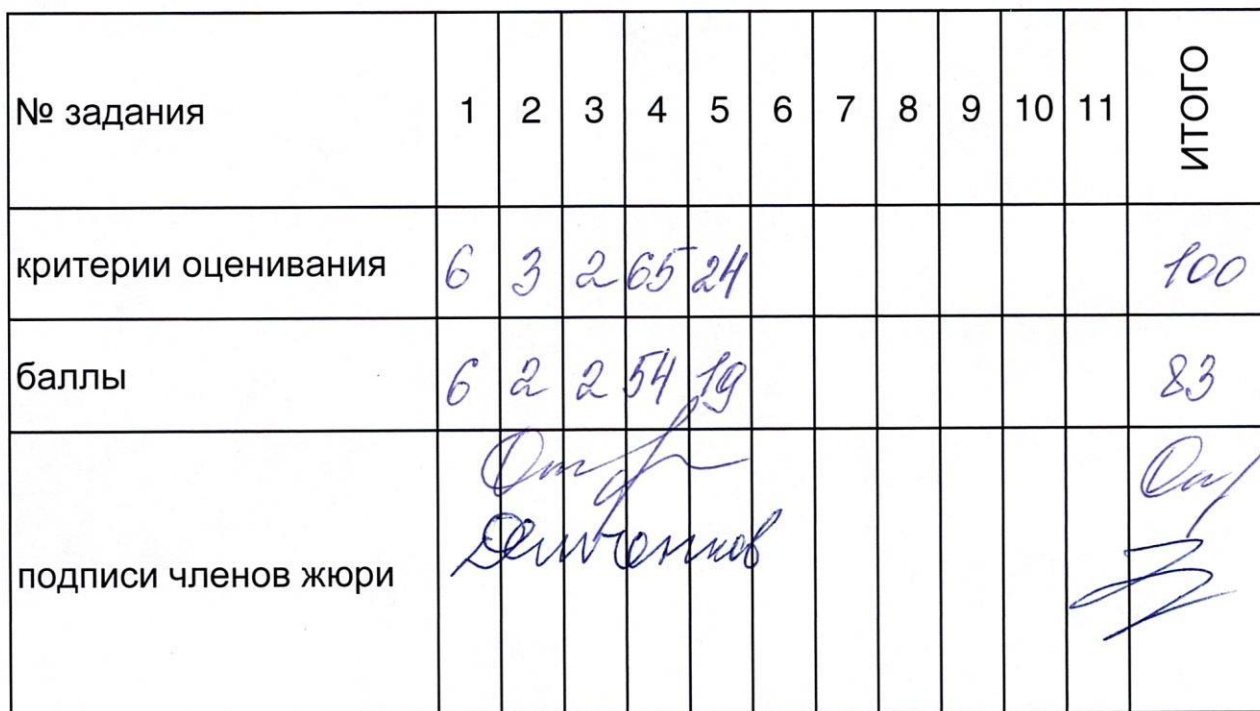 № задания 1 2 3 4 5 6 7 8 9 10 11 ИТОГО
критерии оценивания 6 3 2 65 24 100
баллы 6 2 2 54 19 83
подписи членов жюри